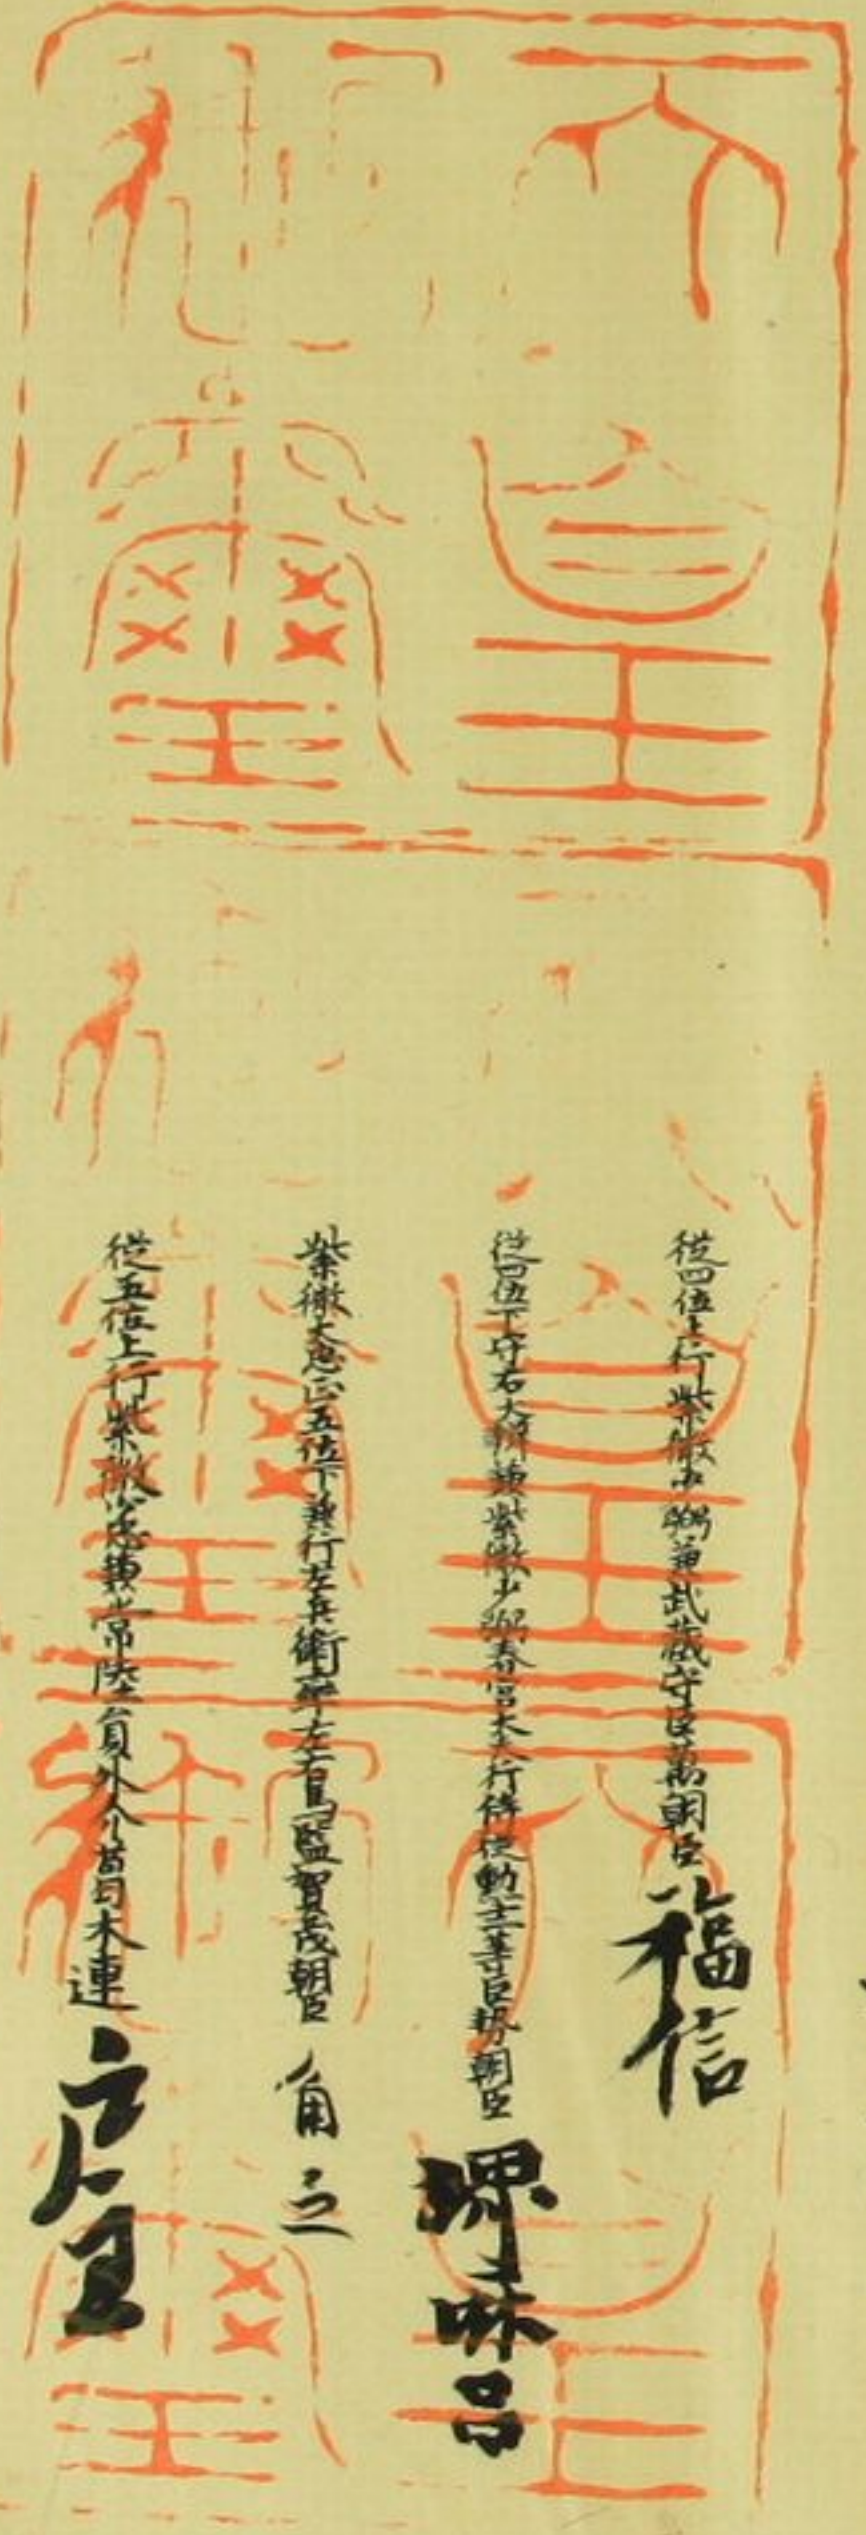 從四位上行紫微少弼兼武蔵守巨萬朝臣 福信
從四位下守右大辨兼紫微少弼春宮大夫行侍從勲十二等巨勢朝臣 堺麻呂
紫微大忠正五位下兼行左兵衛率左右馬監賀茂朝臣 角足
從五位上行紫微少忠兼常陸員外介葛木連 戸主
天皇御璽
天皇御璽
天皇御璽